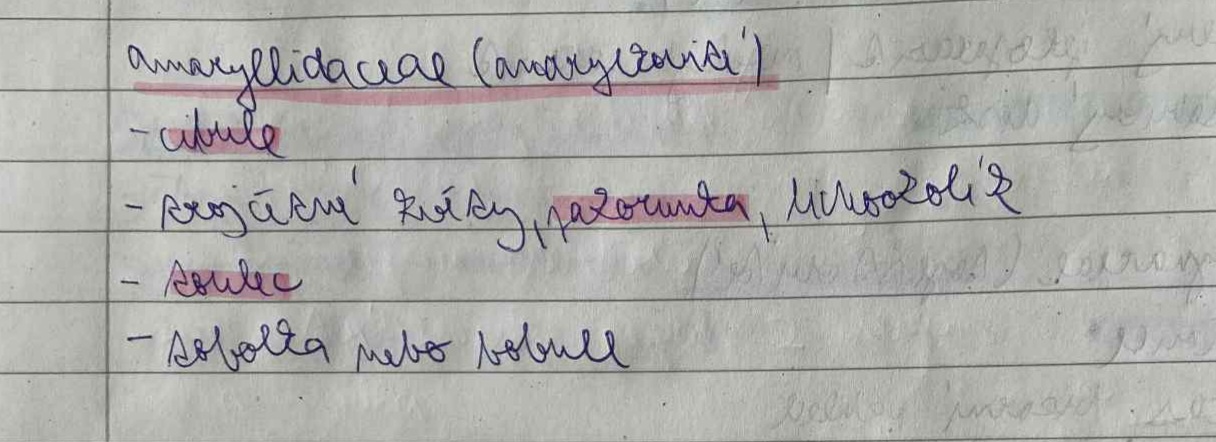 amaryllidaceae (amarylkovité)
- cibule
- trojčetné květy, pakorunka, lichookolík
- toulec
- tobolka nebo bobule